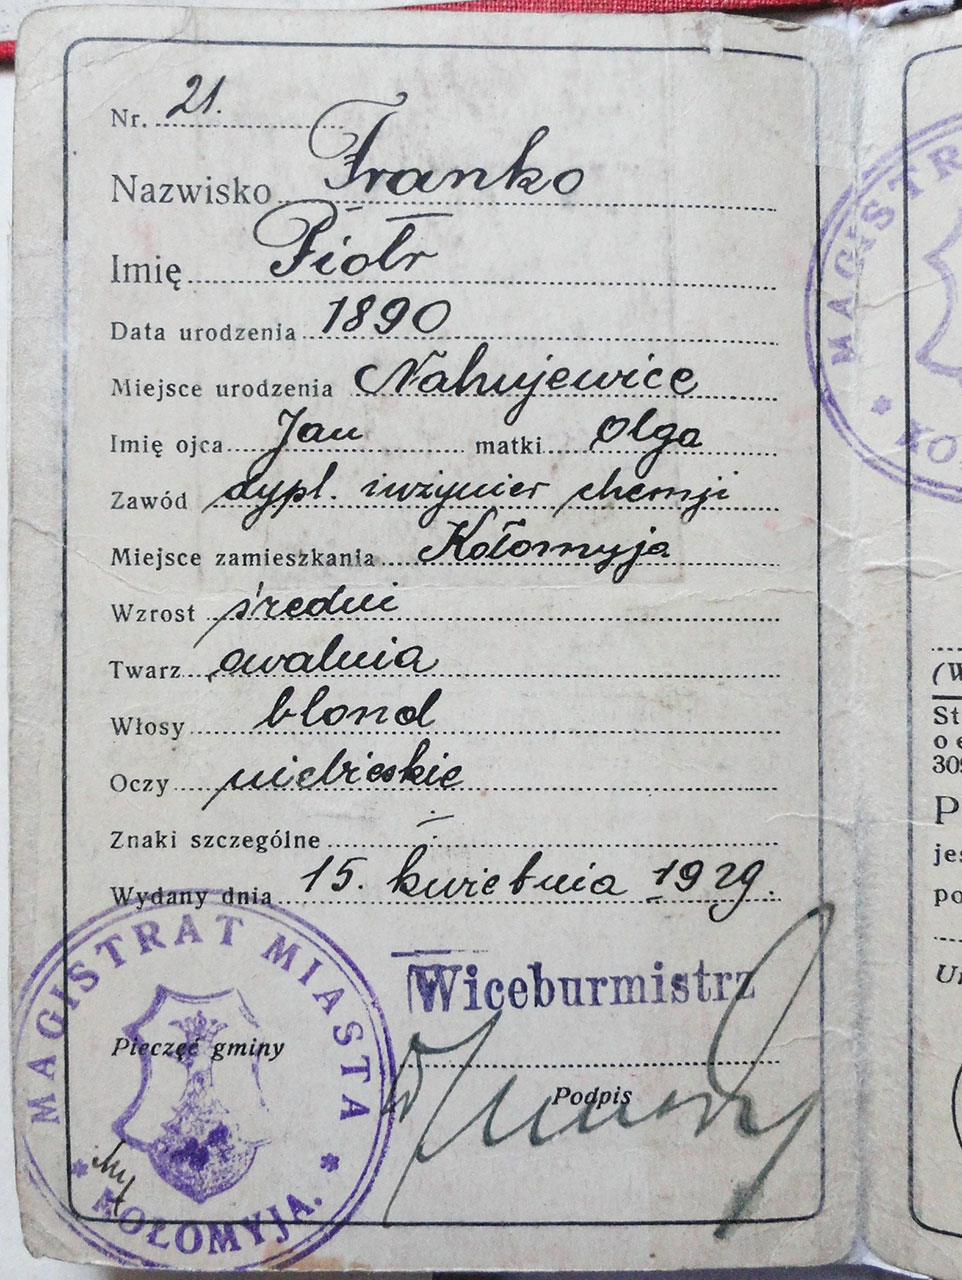 Nr. 21.
Nazwisko Franko
Imię Piotr
Data urodzenia 1890
Miejsce urodzenia Nahujewice
Imię ojca Jan matki Olga
Zawód dypl. inżynier chemji
Miejsce zamieszkania Kołomyja
Wzrost średni
Twarz owalnia
Włosy blond
Oczy niebieskie
Znaki szczególne -:
Wydany dnia 15. kwietnia 1929.
MAGISTRAT MIASTA
* KOŁOMYJA. *
Wiceburmistrz
Pieczęć gminy
Podpis
MAGISTR
* KO
(W
St
o e
309
P
jes
po